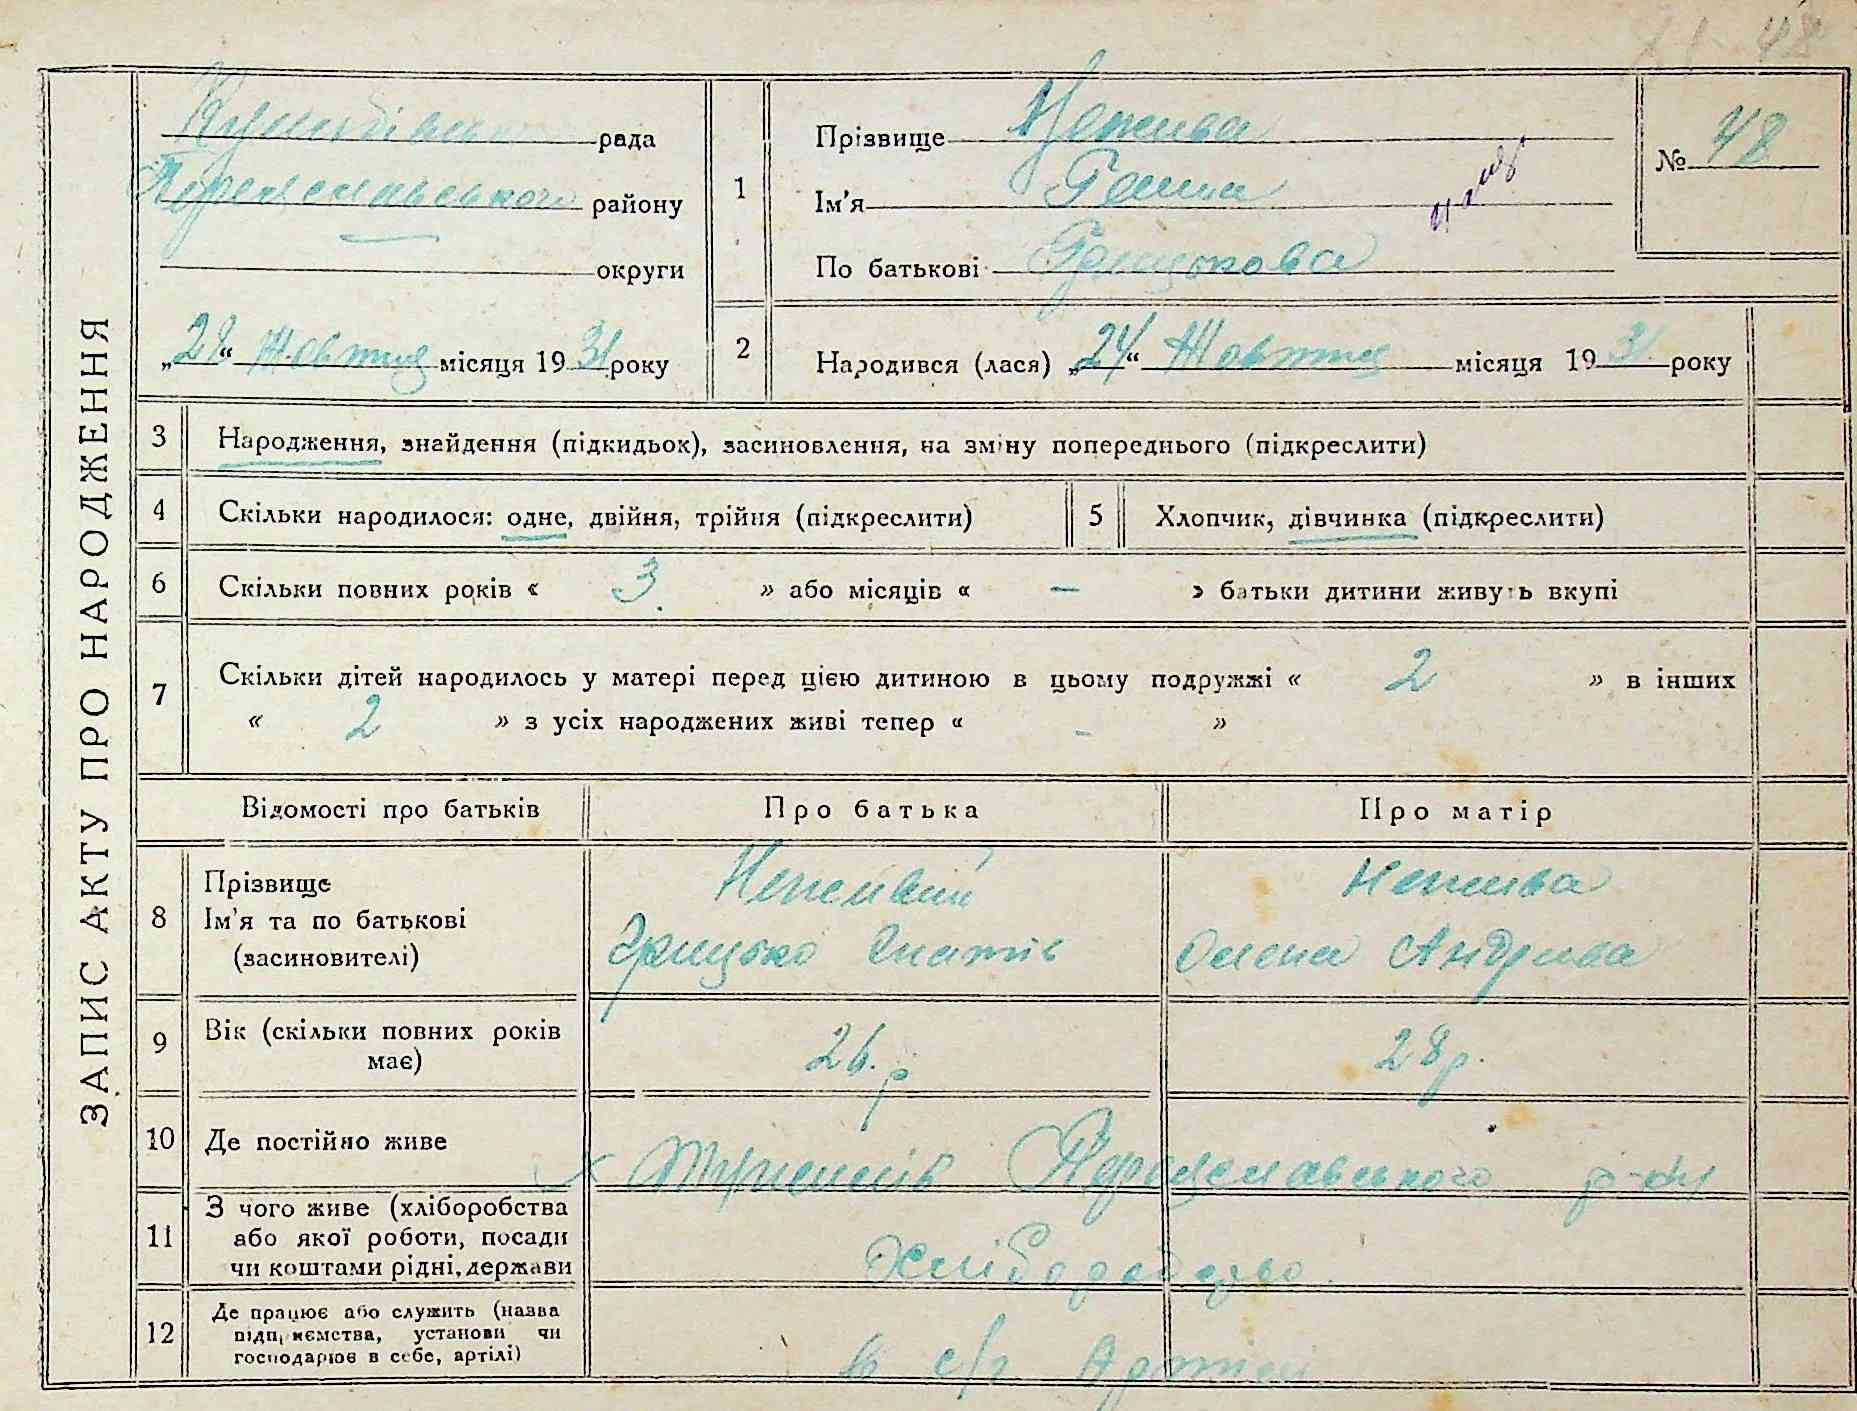 48
ЗАПИС АКТУ ПРО НАРОДЖЕННЯ
рада
Переяславського району
округи
„28“ Жовтня місяця 1931 року
1
Прізвище
Ім'я Ганна
По батькові Грицькова
№ 48
2
Народився (лася) „24“ Жовтня місяця 1931 року
3
Народження, знайдення (підкидьок), засиновлення, на зміну попереднього (підкреслити)
4
Скільки народилося: одне, двійня, трійня (підкреслити)
5
Хлопчик, дівчинка (підкреслити)
6
Скільки повних років « 3 » або місяців « — » батьки дитини живуть вкупі
7
Скільки дітей народилось у матері перед цією дитиною в цьому подружжі « 2 » в інших
« 2 » з усіх народжених живі тепер « - »
Відомості про батьків
Про батька
Про матір
8
Прізвище
Ім'я та по батькові
(засиновителі)
Неживий
Грицько Гнатів
Нежива
Олена Андріїва
9
Вік (скільки повних років
має)
26.р
28р.
10
Де постійно живе
Переяславського р-ну
11
З чого живе (хліборобства
або якої роботи, посади
чи коштами рідні, держави
Хліборобство
12
Де працює або служить (назва
підприємства, установи чи
господарює в себе, артілі)
в с/г Артілі